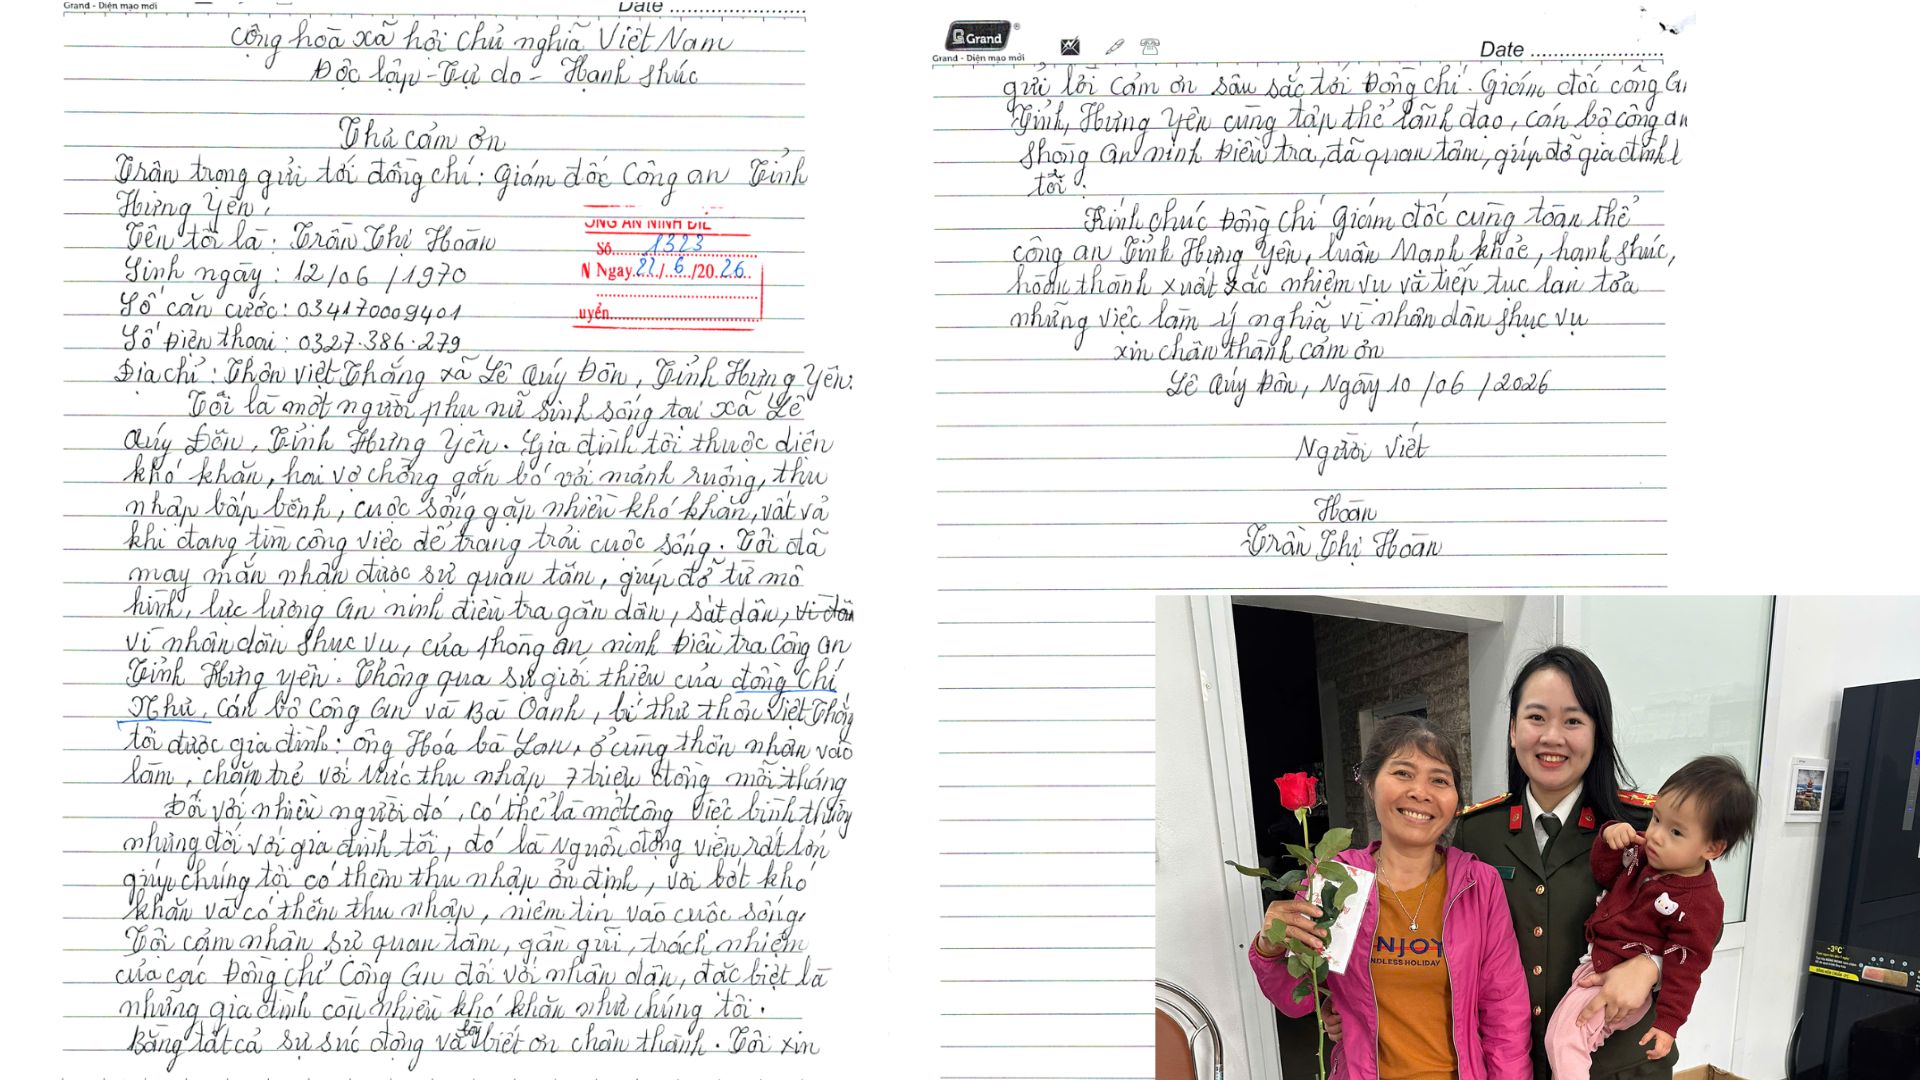 Grand - Diện mạo mới
Date
Cộng hoà xã hội chủ nghĩa Việt Nam
Độc lập - Tự do - Hạnh phúc
Thư cảm ơn
Trân trọng gửi tới đồng chí: Giám đốc Công an Tỉnh
Hưng Yên,
Tên tôi là: Trần Thị Hoàn
Sinh ngày: 12/06/1970
Số căn cước: 034170009401
Số Điện thoại: 0327.386.279
Địa chỉ: Thôn việt Thắng xã Lê Quý Đôn, Tỉnh Hưng Yên.
ONG AN NINH ĐIỀ
Số 1323
N Ngày 22/6/2026
uyển
Tôi là một người phụ nữ sinh sống tại xã Lê
Quý Đôn, Tỉnh Hưng Yên. Gia đình tôi thuộc diện
khó khăn, hai vợ chồng gắn bó với mảnh ruộng, thu
nhập bấp bênh, cuộc sống gặp nhiều khó khăn, vất vả
khi đang tìm công việc để trang trải cuộc sống. Tôi đã
may mắn nhận được sự quan tâm, giúp đỡ từ mô
hình, lực lượng An ninh điều tra gần dân, sát dân,
vì nhân dân phục vụ, của phòng an ninh Điều tra Công an
Tỉnh Hưng yên. Thông qua sự giới thiệu của đồng chí
Như, cán bộ Công an và Bà Oanh, bí thư thôn Việt Thắng
tôi được gia đình: ông Hoá bà Lan, ở cùng thôn nhận vào
làm, chăm trẻ với mức thu nhập 7 triệu đồng mỗi tháng
Đối với nhiều người đó, có thể là một công việc bình thường
nhưng đối với gia đình tôi, đó là nguồn động viên rất lớn
giúp chúng tôi có thêm thu nhập ổn định, vơi bớt khó
khăn và có thêm thu nhập, niềm tin vào cuộc sống,
Tôi cảm nhận sự quan tâm, gần gũi, trách nhiệm
của các Đồng chí Công an đối với nhân dân, đặc biệt là
những gia đình còn nhiều khó khăn như chúng tôi.
Bằng tất cả sự xúc động và biết ơn chân thành. Tôi xin
Grand
Grand - Diện mạo mới
Date
gửi lời cảm ơn sâu sắc tới Đồng chí. Giám đốc công an
Tỉnh, Hưng Yên cùng tập thể lãnh đạo, cán bộ công an
phòng an ninh Điều tra, đã quan tâm, giúp đỡ gia đình
tôi.
Kính chúc Đồng chí Giám đốc cùng toàn thể
công an Tỉnh Hưng Yên, luôn Mạnh khoẻ, hạnh phúc,
hoàn thành xuất sắc nhiệm vụ và tiếp tục lan toả
những việc làm ý nghĩa vì nhân dân phục vụ
xin chân thành cảm ơn
Lê Quý Đôn, Ngày 10/06/2026
Người viết
Hoàn
Trần Thị Hoàn
NJOY
NDLESS HOLIDAY
-3°C